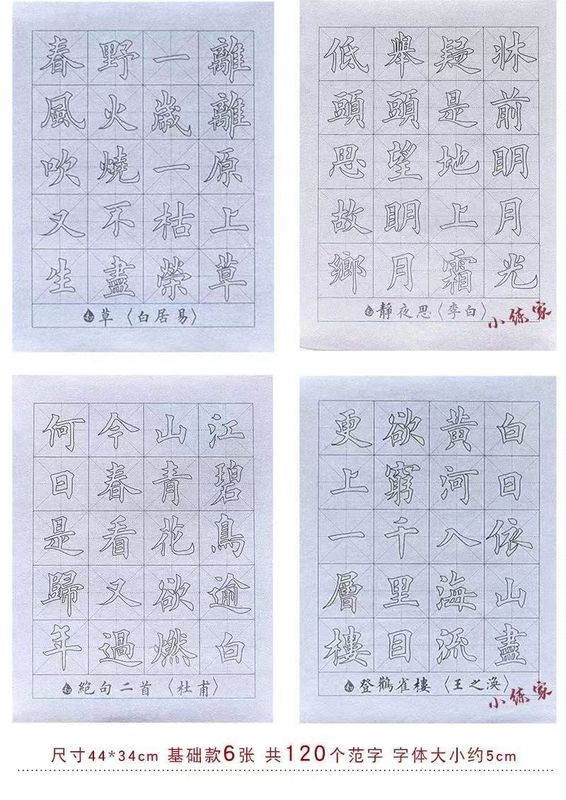 離離原上草
一歲一枯榮
野火燒不盡
春風吹又生
草〈白居易〉
牀前眀月光
疑是地上霜
舉頭望眀月
低頭思故鄉
靜夜思〈李白〉
小练家
江碧鳥逾白
山青花欲燃
今春看又過
何日是歸年
絕句二首〈杜甫〉
白日依山盡
黃河入海流
欲窮千里目
更上一層樓
登鸛雀樓〈王之渙〉
小练家
尺寸44*34cm 基础款6张 共120个范字 字体大小约5cm